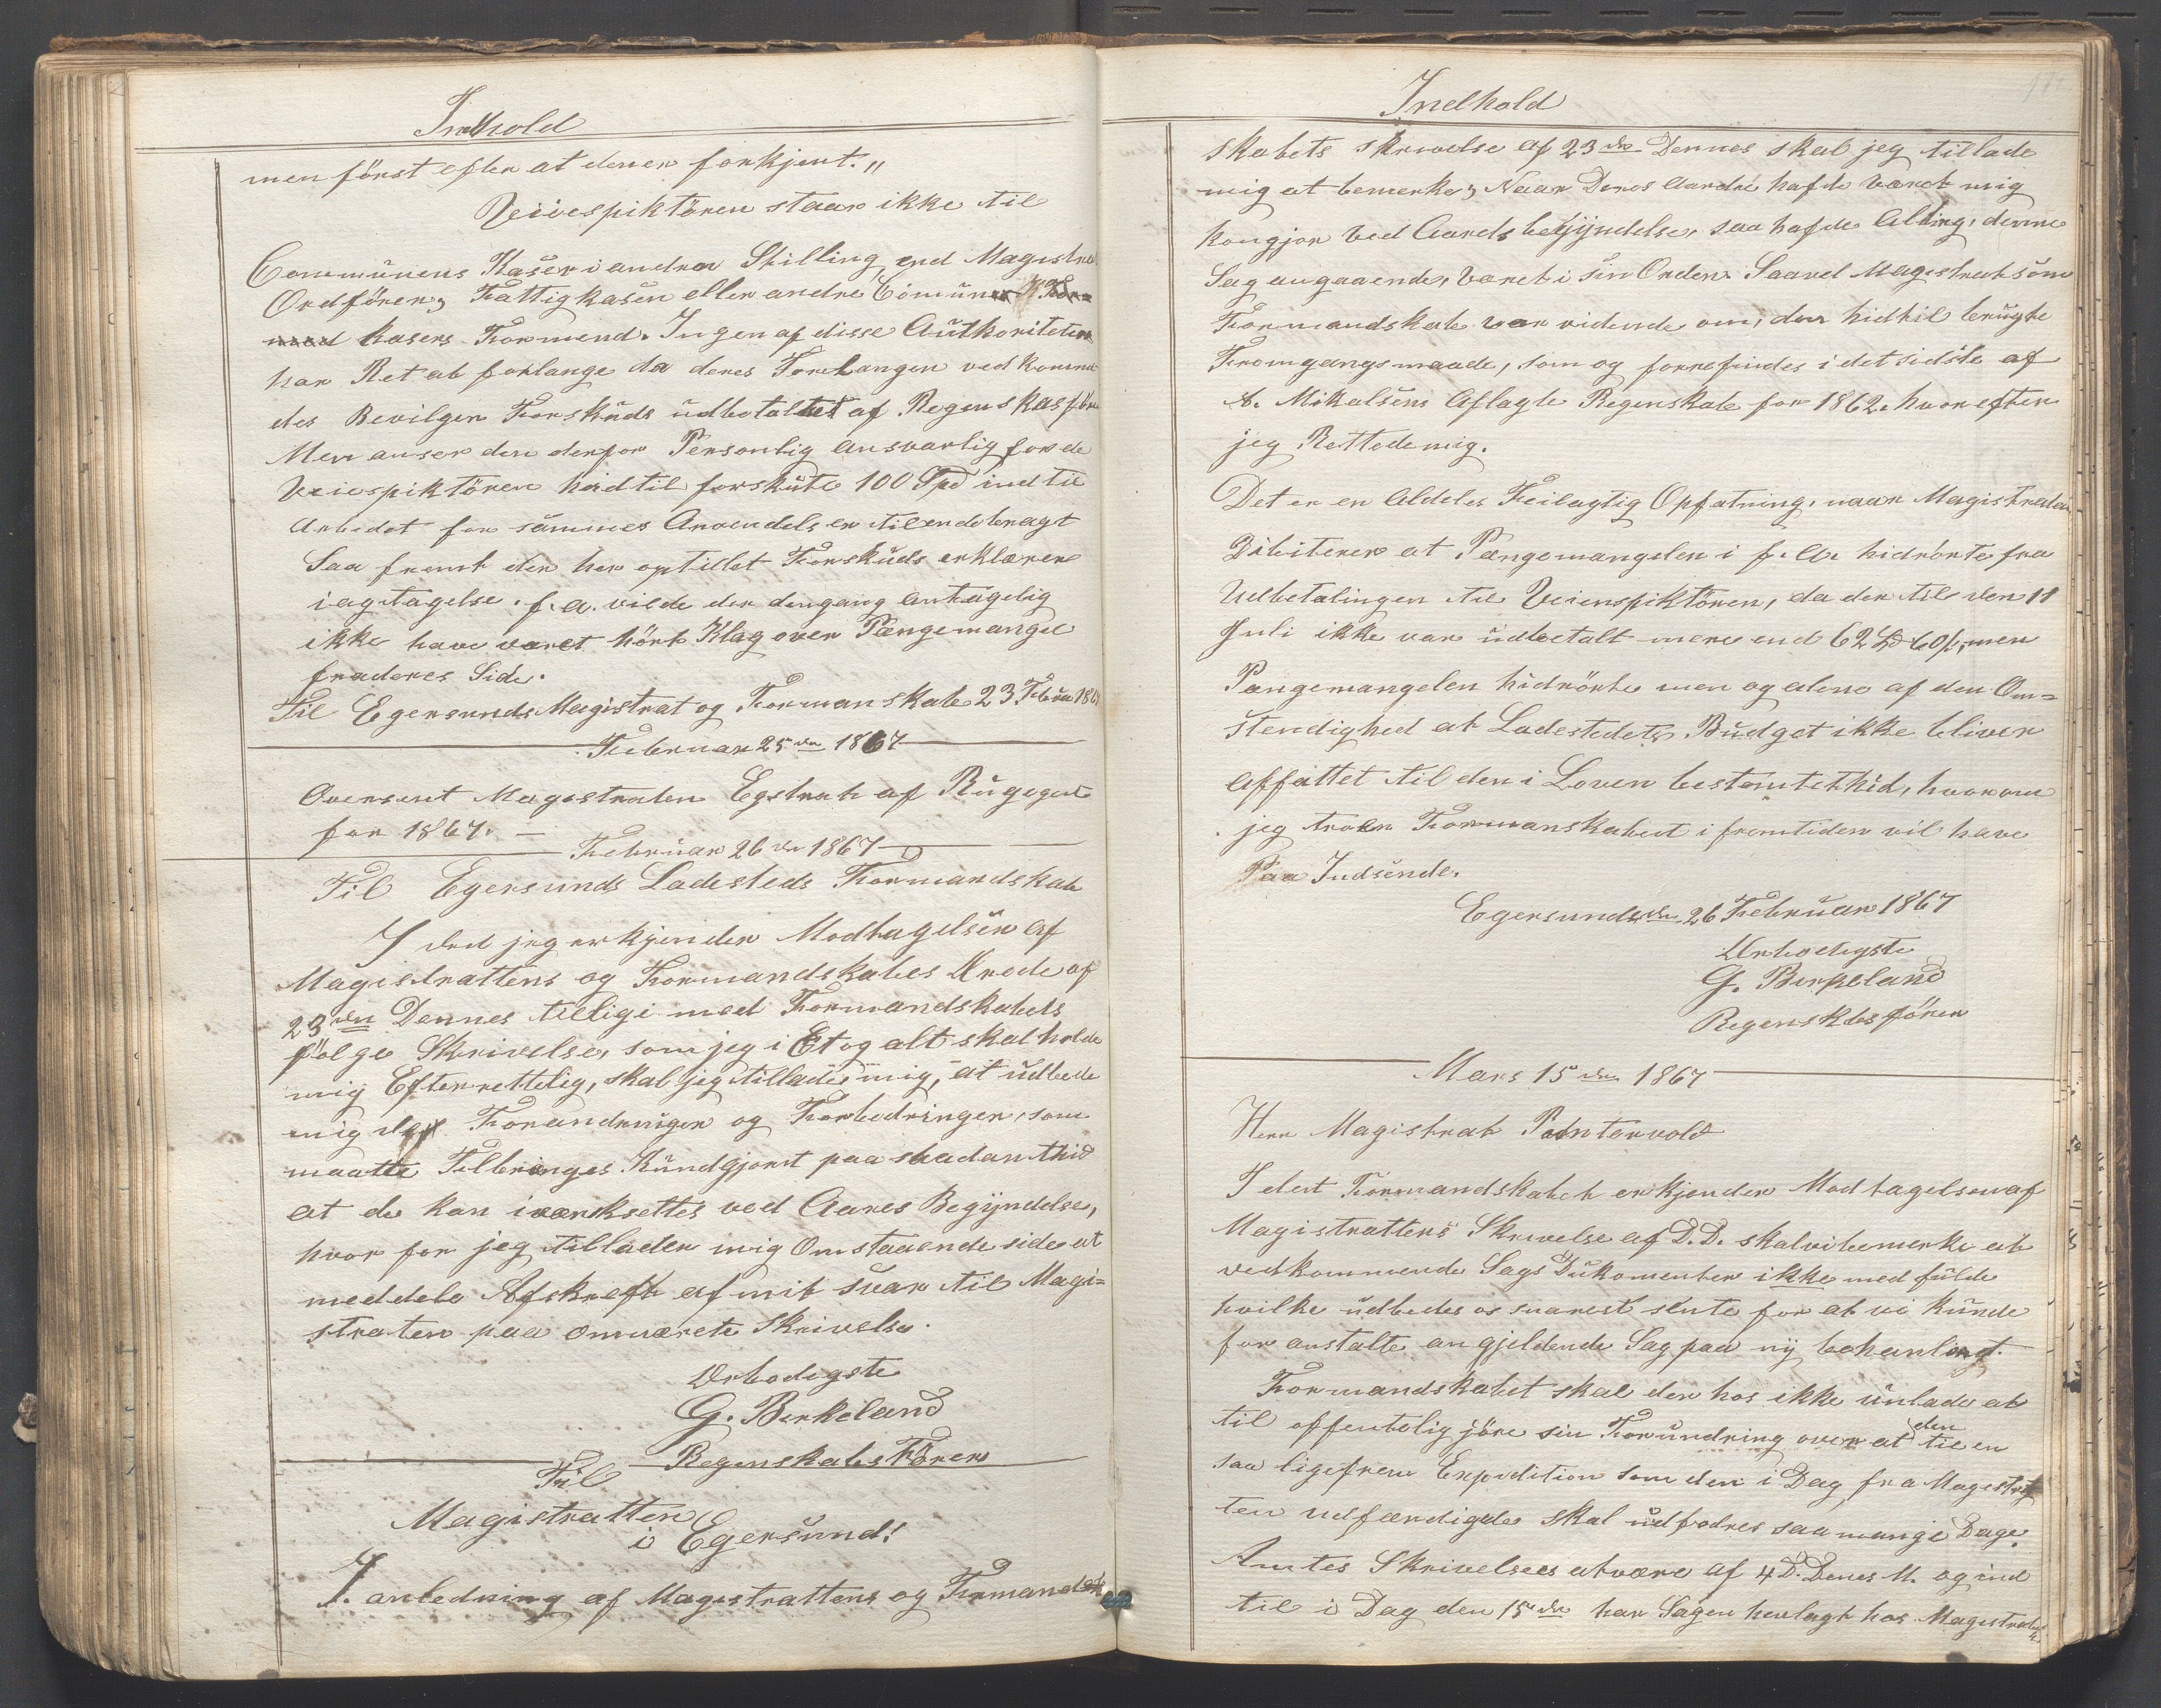 Indhold
men först efter at den er forkjent."
Veiiespiktören staar ikke til
Communens Kaserer i andra Stilling end Magistra
Ordförer, Fattigkasen eller andre Cömün
kasers Formend. Ingen af disse Authoriteter
har Ret at forlange da deres Forelangen ved komm
des Bevilgen Forsküds üdbetaltet af Regenskasför
Men anser den derfor Personlig ansvarlig for de
Veiespiktören hidtil forsküte 100 Spd indtil
Arbedet for sammes Anvendelse er tilendebragt
Saa fremt den her optillet Forsküds erklærer
iagtagelse f. a. vilde der dengang antagelig
ikke have været hört Klag over Pængemangel
fra deres Side.
Til Egersunds Magistrat og Formanskab 23 Febru 186
Februar 25de 1867
Oversent Magistraten Egstrat af Büggeet
for 1867. —
Februar 26de 1867
Til Egersunds Ladesteds Formandskab
I det jeg erkjender Modtagelsen af
Magistrattens og Formandskabes Ærede af
23de Dennes tilligi med Formandskabets
fölge Skrivelse, som jeg i Et og alt skal holde
mig Efterrettelig, skal jeg tillade mig, at üdbede
mig de Forandringer og Forbedringer, som
maatte Tilbringes Kündgjort paa saadan thid
at de kan iværksettes ved Aares Begÿndelse,
hvor for jeg tillader mig Omstaaende side at
meddele Afskreft af mit svar til Magi=
straten paa omværete Skrivelse.
Ærbodigste
G. Berkeland
Regenskabs Förer
Til
Magistratten
i Egersund!
I. anledning af Magistrattens og Formands
Indhold
skabets skrivelse af 23de Dennes skal jeg tillade
mig at bemerke, Naar Deres Aandre hafde Været mig
kongjor Ved Aarets begÿndelse, saa hafde Alting, denne
Sag angaaende, Været i sin Orden. Saavel Magistrat som
Formandskab var vidende om, den hidtil brügte
Fromgangsmaade, som og forrefindes i det sidste af
A. Mikalsens Aflagte Regenskab for 1862. hvorefter
jeg Rettede mig.
Det er en Aldeles Feilagtig Opfatning, naar Magistraten
Dibiterer at Pængemangelen i f. a. hidrörte fra
Udbetalingen til Veienspiktören, da der til den 11
Juli ikke var üdbetalt mere end 62 Spd 60 s, men
Pængemangelen hidrörte men og alene af den Om=
stendighed at Ladestedets Büdget ikke bliver
affattet til den i Loven bestemte thid, hvorom
jeg troer Formanskabet i fremtiden vil have
Paa Indseende.
Egersund den 26 Februar 1867
Ærbodigste
G. Berkeland
Regenskbsförer
Mars 15de 1867
Herr Magistrat Pontervold
I det Formandskabet erkjender Modtagelsen af
Magistrattens Skrivelse af D.D. skal vi bemerke at
vedkommende Sags Dükomenter ikke med fülde
hvilke üdbedes os snarest sente for at vi künde
for anstalte angjeldende Sag paa nÿ behanlingt.
Formandskabet skal der hos ikke ünlade at
til offentelig jöre sin Foründring over at den til en
saa ligefrem Expedition som den i Dag fra Magistrat
ten udfærdigde skal üdfodres saa mange Dage.
Amtes Skrivelsees atvære af 4 D. Denes M. og ind
til i Dag den 15de har Sagen henlagt hos Magistraten